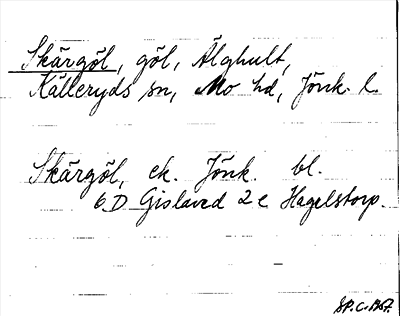 Skärgöl, göl, Älghult,
Källeryds sn, Mo hd, Jönk. l.
Skärgöl, ek. Jönk. bl.
6D Gislaved 2e Hagelstorp.
SP.C. 1967.